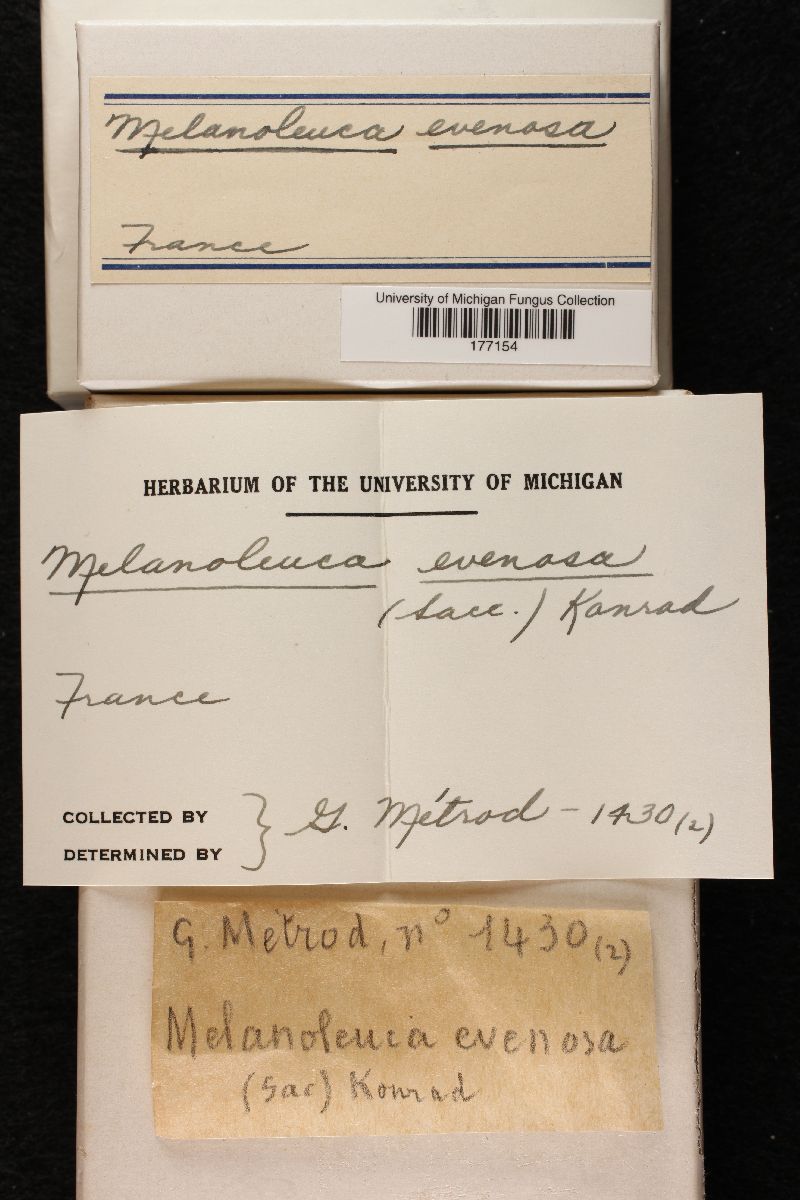 Melanoleuca evenosa
France
University of Michigan Fungus Collection
177154
HERBARIUM OF THE UNIVERSITY OF MICHIGAN
Melanoleuca evenosa
(Sacc.) Konrad
France
COLLECTED BY
DETERMINED BY } G. Métrod - 1430(2)
G. Métrod, n° 1430(2)
Melanoleuca evenosa
(Sac) Konrad